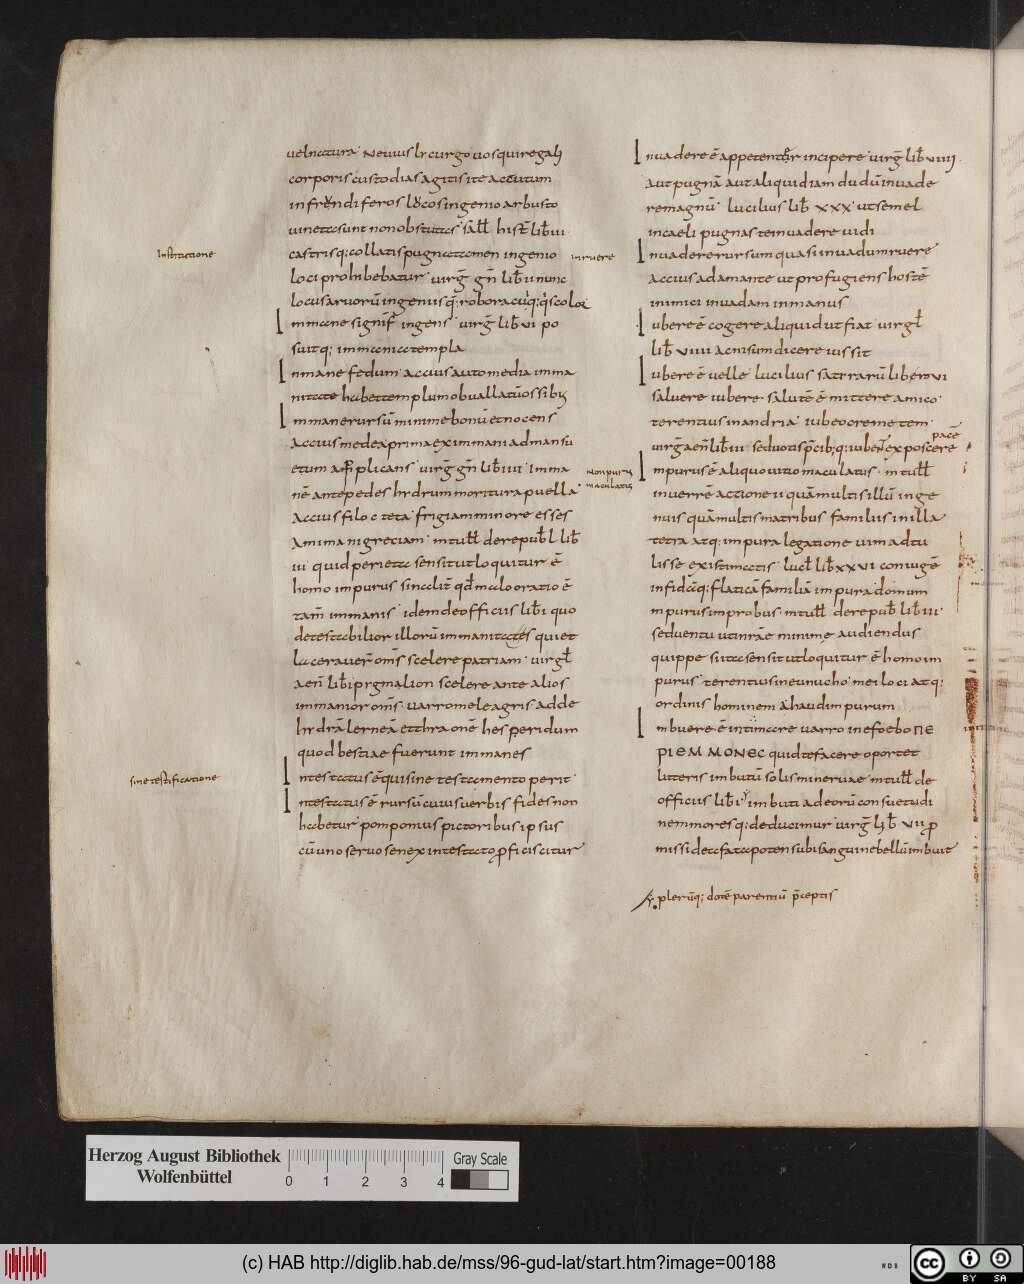 uel natura. Neuius lycurgo uos qui regalis
corporis custodias agitis ite actutum
in frundiferos locos ingenio arbusto
uineta sunt non obsita. sall hist lib iii
Instructione
castrisq; collatis pugna tamen ingenio
loci prohibebatur. uirg gn lib ii nunc
locus aruorū ingeniis q̄; robora cuiq; q̄s color
Inmane signif ingens. uirg lib vi po
suitq; immania templa
Inmane fedum. accius automedia imma
nitate habet templum obuallatū ossibus
Inmane rursū minime bonū et nocens
Accius medea prima ex inmani ad mansu
etum applicans. uirg gn lib iiii imma
nē ante pedes hydrum moritura puella
Accius filocteta. frigiam minore esse
inmani greciam. m tull de re publ lib
iii quid perieta sensit ut loquitur ē
homo impurus
tam immanis. idem de officiis lib i quo
detestabilior illorū immanitas est qui et
lacerauer om̄s scelere patriam. uirgl
aen lib i pygmalion scelere ante alios
immanior om̄s. uarro meleagris adde
hydrā lerneā et thraonē hes peridum
quod bestiae fuerunt immanes
sine testificatione
Intestatus ē qui sine testamento perit
Intestatus ē rursū cuius uerbis fides non
habetur. pomponius pictoribus ipsus
cū uno seruo senex intestato proficiscitur
Inuadere ē appetenter incipere. uirg lib viiii
Aut pugnā aut aliquid iamdudū inuade
re magnū. lucilius lib xxx. ut semel
in caeli pugnas te inuadere uidi
inruere
Inuadere rursum quasi inuadum ruere
Accius adamante ut profugiens hostē
inimici inuadam in manus
Iubere ē cogere aliquid ut fiat uirgl
lib viiii ac nisum dicere iussit
Iubere ē uelle. lucilius satyrarū libero vi
saluere iubere salutē ē mittere amico
terentius in andria. iubeo cremetem
uirg aen lib iii seduotis p̄cib; q; iubent exposcere pacē
non purus
maculatus
Inpurus ē aliquo uitio maculatus. m tull
in uerrē actione ii quā multis illū inge
nuis quā multis matribus familiis in illa
tetra atq; impura legatione uim adtu
lisse existimatis. lucil lib xxvi coniugē
infidāq; flaticā familiā impura domum
Inpurus improbus. m tull de re publ lib iii
sed uentu utin rāe minime audiendus
quippe si ita sensit ut loquitur ē homo im
purus. terentius in eunucho. mei loci atq;
ordinis hominem haud impurum
Inbuere ē intimare uarro in efoebo ΠΕ
ΡΙ ΕΜΜΟΝΕC quid te facere oportet
litteris imbutū solis mineruae m tull de
officiis lib i imbuti ad eorū consuetudi
nem moresq; deducimur. uirg lib vii p
missi deta fata potens ubi sanguine bellū imbuit
plerūq; dotē parentiū p̄ceptis
Herzog August Bibliothek
Wolfenbüttel
0 1 2 3 4
Gray Scale
(c) HAB http://diglib.hab.de/mss/96-gud-lat/start.htm?image=00188
WDB
cc BY SA